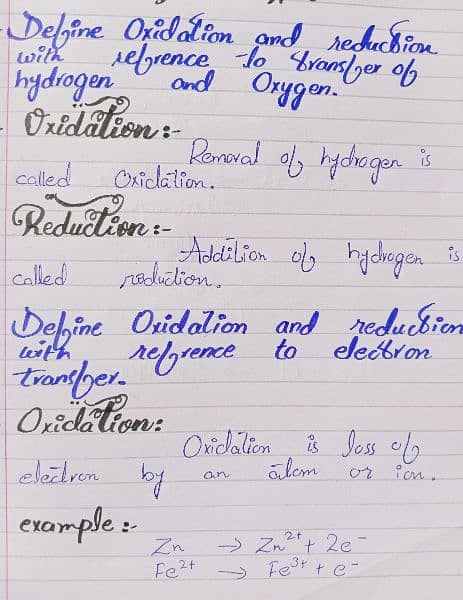 Define Oxidation and reduction
with reference to transfer of
hydrogen and Oxygen.
Oxidation:-
Removal of hydrogen is
called Oxidation.
Reduction:-
Addition of hydrogen is
called reduction.
Define Oxidation and reduction
with reference to electron
transfer.
Oxidation:
Oxidation is loss of
electron by an atom or ion.
example:-
Zn → Zn²⁺ + 2e⁻
Fe²⁺ → Fe³⁺ + e⁻